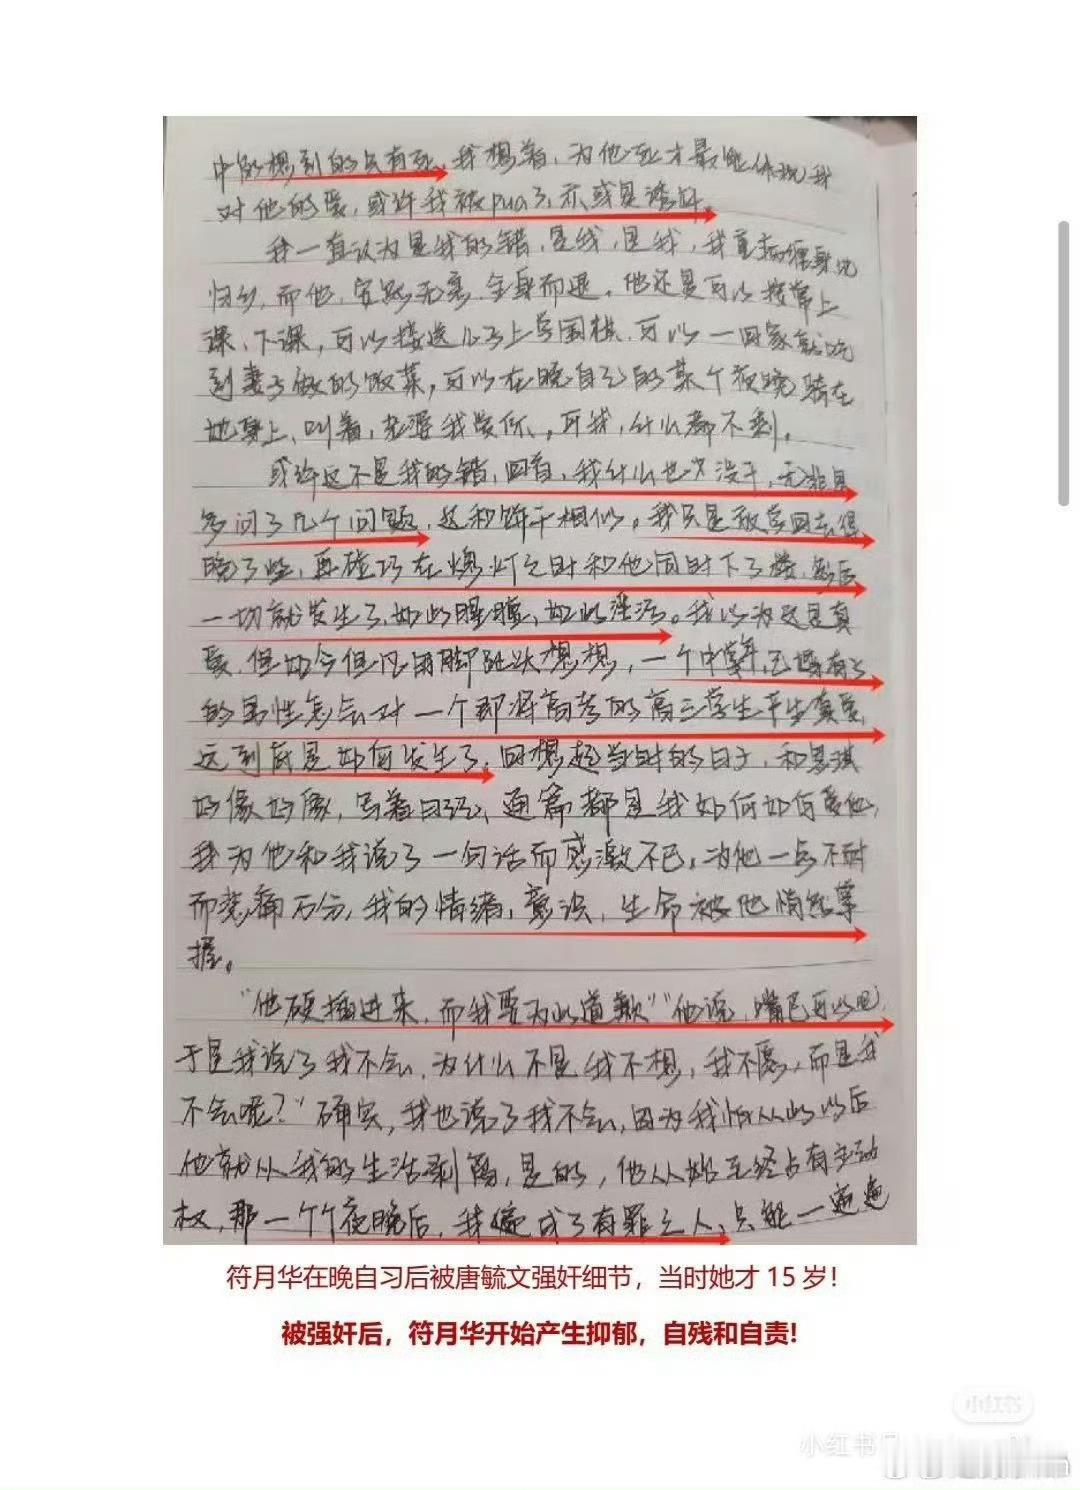 中的想到的只有死,我想着,为他死才最能体现我
对他的爱,或许我被pua了,亦或是诱奸。
我一直认为是我的错,是我,是我,我重病缠身
归乡,而他,安然无恙,全身而退。他还是可以接常上
课、下课,可以接送儿子上学围棋,可以一回家就吃
到妻子做的饭菜,可以在晚自习的某个夜晚骑在
她身上,叫着,老婆我爱你。可我,什么都不剩。
或许这不是我的错,回首,我什么也没干,无非是
多问了几个问题,这和饼干相似。我只是放学回去得
晚了些,再碰巧在熄灯之时和他同时下了楼,然后
一切就发生了,如此腥膻,如此淫污。我以为这是真
爱,但如今但凡用脚趾头想想,一个中年,已婚有子
的男性怎么对一个即将高考的高三学生产生真爱,
这到底是如何发生了。回想起当时的日子,和思琪
好像好像,写着日记,通篇都是我如何如何爱他,
我为他和我说了一句话而感激不已,为他一点不耐
而悲痛万分,我的情绪,意识,生命被他悄然掌
握。
“他硬插进来,而我要为此道歉”“他说,嘴巴可以吧,
于是我说了我不会,为什么不是我不想,我不愿,而是我
不会呢?”确实,我也说了我不会,因为我怕从此以后
他就从我的生活剥离,是的,他从始至终占有主动
权,那一个个夜晚后,我便成了有罪之人,只能一遍遍
符月华在晚自习后被唐毓文强奸细节,当时她才 15 岁!
被强奸后,符月华开始产生抑郁,自残和自责!
小红书
小红书